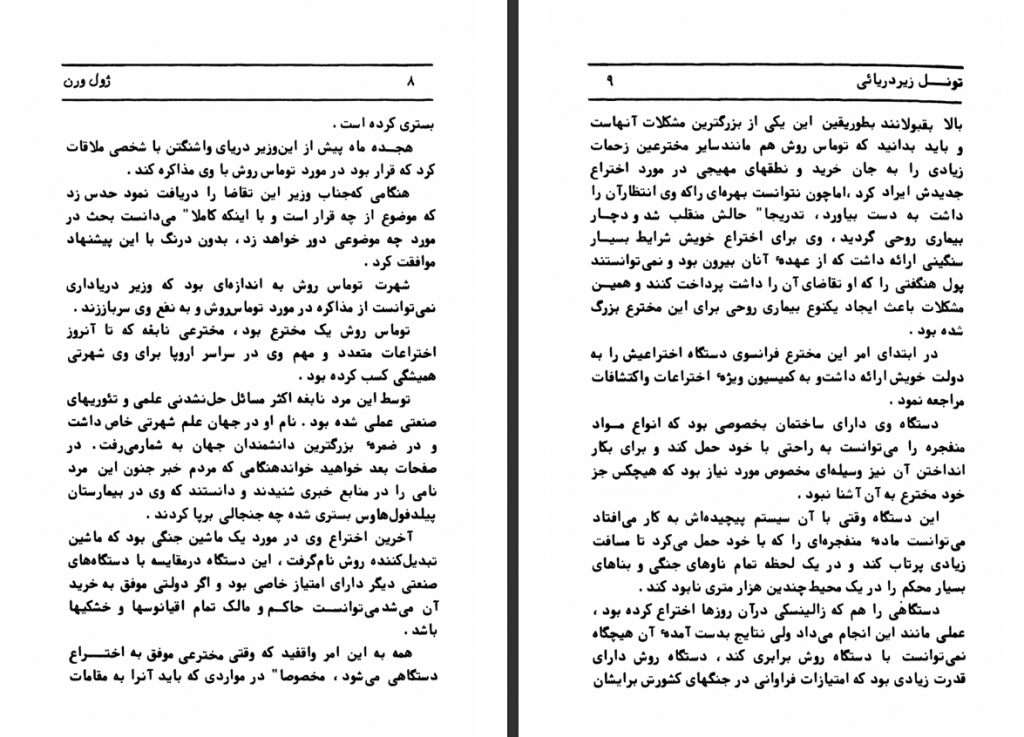 ژول ورن
۸
بستری کرده است .
هجـده ماه پیش از این‌وزیر دریای واشنگتن با شخصی ملاقات
کرد که قرار بود در مورد توماس روش با وی مذاکره کند .
هنگامی که‌جناب وزیر این تقاضا را دریافت نمود حدس زد
که موضوع از چه قرار است و با اینکه کاملا" می‌دانست بحث در
مورد چه موضوعی دور خواهد زد ، بدون درنگ با این پیشنهاد
موافقت کرد .
شهرت توماس روش به اندازه‌ای بود که وزیر دریاداری
نمی‌توانست از مذاکره در مورد توماس‌روش و به نفع وی سرباززند .
توماس روش یک مخترع بود ، مخترعی نابغه که تا آنروز
اختراعات متعدد و مهم وی در سراسر اروپا برای وی شهرتی
همیشگی کسب کرده بود .
توسط این مرد نابغه اکثر مسائل حل‌نشدنی علمی و تئوریهای
صنعتی عملی شده بود . نام او در جهان علم شهرتی خاص داشت
و در ضمرهٔ بزرگترین دانشمندان جهان به شمارمی‌رفت . در
صفحات بعد خواهید خواندهنگامی که مردم خبر جنون این مرد
نامی را در منابع خبری شنیدند و دانستند که وی در بیمارستان
پیلدفول‌هاوس بستری شده چه جنجالی برپا کردند .
آخرین اختراع وی در مورد یک ماشین جنگی بود که ماشین
تبدیل‌کننده روش نام‌گرفت ، این دستگاه درمقایسه با دستگاه‌های
صنعتی دیگر دارای امتیاز خاصی بود و اگر دولتی موفق به خرید
آن می‌شد می‌توانست حاکم و مالک تمام اقیانوسها و خشکیها
باشد .
همه به این امر واقفید که وقتی مخترعی موفق به اختـــراع
دستگاهی می‌شود ، مخصوصا" در مواردی که باید آنرا به مقامات
تونـــل زیردریائی
۹
بالا بقبولانند بطوریقین این یکی از بزرگترین مشکلات آنهاست
و باید بدانید که توماس روش هم مانندسایر مخترعین زحمات
زیادی را به جان خرید و نطقهای مهیجی در مورد اختراع
جدیدش ایراد کرد ،اماچون نتوانست بهره‌ای راکه وی انتظارآن را
داشت به دست بیاورد ، تدریجا" حالش منقلب شد و دچـار
بیماری روحی گردید ، وی برای اختراع خویش شرایط بسیـار
سنگینی ارائه داشت که از عهدهٔ آنان بیرون بود و نمی‌توانستند
پول هنگفتی را که او تقاضای آن را داشت پرداخت کنند و همیـن
مشکلات باعث ایجاد یکنوع بیماری روحی برای این مخترع بزرگ
شده بود .
در ابتدای امر این مخترع فرانسوی دستگاه اختراعیش را به
دولت خویش ارائه داشت‌و به کمیسیون ویژهٔ اختراعات واکتشافات
مراجعه نمود .
دستگاه وی دارای ساختمان بخصوصی بود که انواع مـواد
منفجره را می‌توانست به راحتی با خود حمل کند و برای بکار
انداختن آن نیز وسیله‌ای مخصوص مورد نیاز بود که هیچکس جز
خود مخترع به آن آشنا نبود .
این دستگاه وقتی با آن سیستم پیچیده‌اش به کار می‌افتاد
می‌توانست مادهٔ منفجره‌ای را که با خود حمل می‌کرد تا مسافت
زیادی پرتاب کند و در یک لحظه تمام ناوهای جنگی و بناهای
بسیار محکم را در یک محیط‌چندین هزار متری نابود کند .
دستگاهی را هم که زالینسکی درآن روزها اختراع کرده بود ،
عملی مانند این انجام می‌داد ولی نتایج بدست آمدهٔ آن هیچگاه
نمی‌توانست با دستگاه روش برابری کند ، دستگاه روش دارای
قدرت زیادی بود که امتیازات فراوانی در جنگهای کشورش برایشان